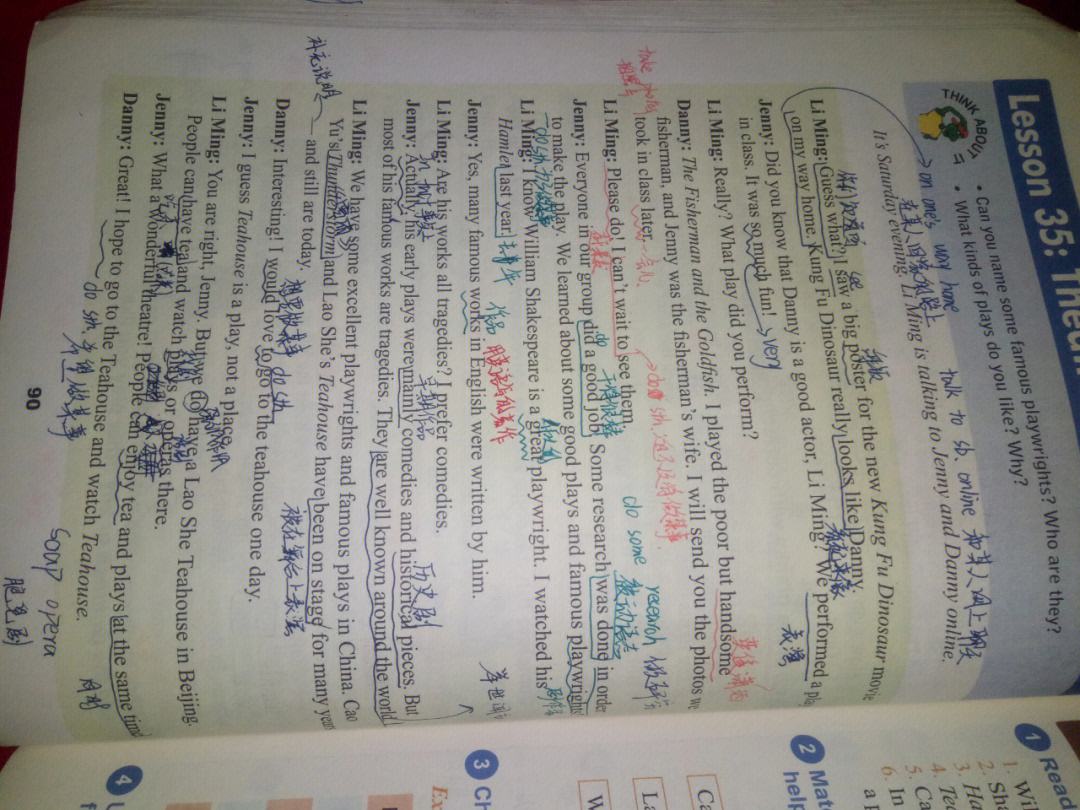 Lesson 35:
THINK ABOUT IT
• Can you name some famous playwrights? Who are they?
• What kinds of plays do you like? Why?
on one's way home talk to sb. online 和某人网上聊天
在某人回家的路上
It's Saturday evening. Li Ming is talking to Jenny and Danny online.
Li Ming: Guess what? I saw a big poster for the new Kung Fu Dinosaur movie
see 海报
on my way home. Kung Fu Dinosaur really looks like Danny.
看起来像
Jenny: Did you know that Danny is a good actor, Li Ming? We performed a
表演
in class. It was so much fun! very
Li Ming: Really? What play did you perform?
Danny: The Fisherman and the Goldfish. I played the poor but handsome
英俊潇洒
fisherman, and Jenny was the fisherman's wife. I will send you the photos we
take photos
took in class later.
Li Ming: Please do! I can't wait to see them.
do some research 做研究
Jenny: Everyone in our group did a good job. Some research was done in
do 干得很棒 被动语态
to make the play. We learned about some good plays and famous playwrights.
Li Ming: I know William Shakespeare is a great playwright. I watched his
伟大的 剧作家
Hamlet last year. 去年
作品
Jenny: Yes, many famous works in English were written by him.
Li Ming: Are his works all tragedies? I prefer comedies.
事实上 早期作品 历史剧 举世闻名
Jenny: Actually, his early plays were mainly comedies and historical pieces. But
most of his famous works are tragedies. They are well known around the world.
Li Ming: We have some excellent playwrights and famous plays in China. Cao
Yu's Thunderstorm and Lao She's Teahouse have been on stage for many years
补充说明
— and still are today.
想要做某事 do sth. 被在舞台上表演
Danny: Interesting! I would love to go to the teahouse one day.
Jenny: I guess Teahouse is a play, not a place.
Li Ming: You are right, Jenny. But we do have a Lao She Teahouse in Beijing.
People can have tea and watch plays or operas there.
喝茶
Jenny: What a wonderful theatre! People can enjoy tea and plays at the same time.
同时
Danny: Great! I hope to go to the Teahouse and watch Teahouse.
do sth. 希望做某事
soup opera
肥皂剧
90
1 Read
1. Wil
2. Sh
3. Ha
4. Te
5. Ca
6. In
2 Mat
help
Ca
La
W
3 Ch
Ex
4